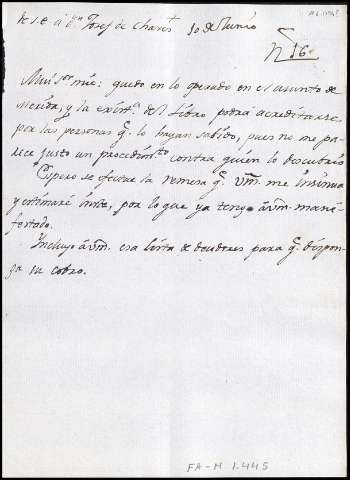 de S.E. a Dn. Josef de Chaves 10 de Junio
N 16
Mui Sor. mio: quedo en lo operado en el asunto de
y la exista. del Libro podrá acreditarse
por las personas q. lo hayan sabido, pues no me pa-
rece justo un procedimto. contra quien lo descubrió
Espero se efectue la remesa q. Vm. me insinua
y estimaré inste, por lo que ya tengo á Vm. mani-
festado.
Incluyo á Vm. esa lista de deudores para q. dispon-
ga su cobro.
FA-M 1.445